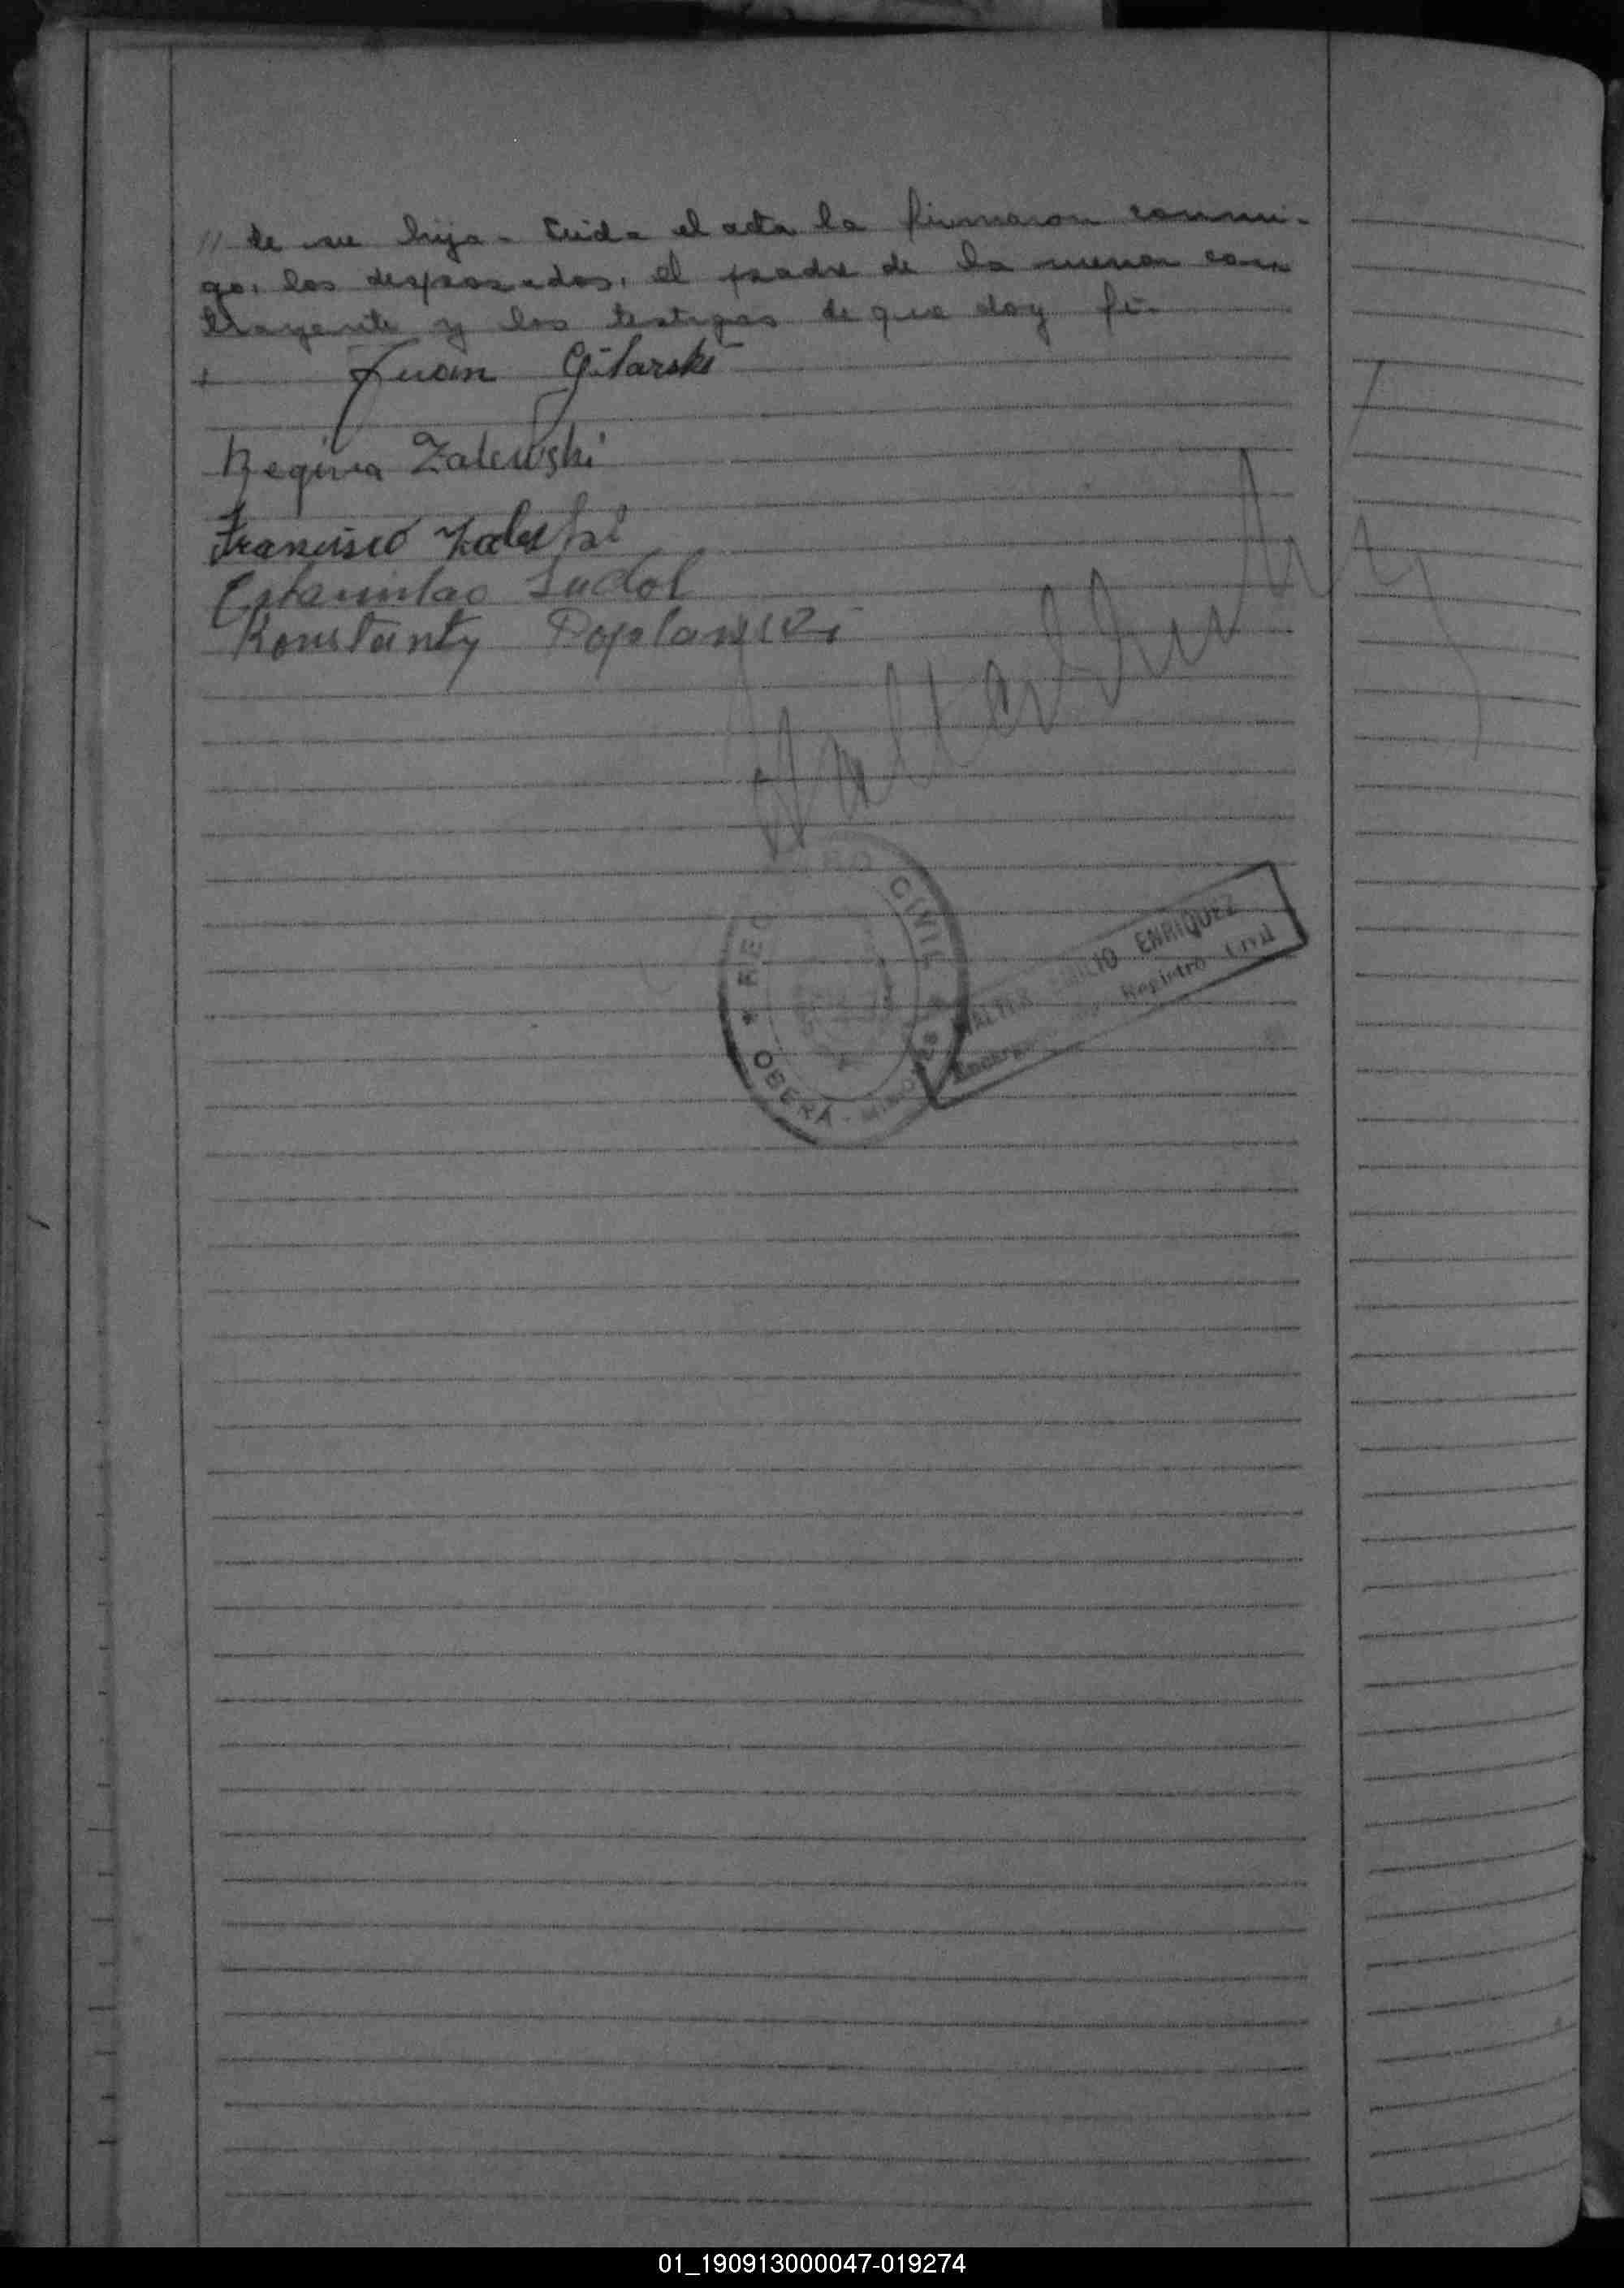 // de su hija - Leida el acta la firmaron conmi-
go, los desposados, el padre de la menor con
trayente y los testigos de que doy fé.-
Juan Gilarski
Regina Zalewski
Francisco Zaleski
Estanislao Sudol
Konstanty
REGISTRO CIVIL
OBERÁ - MISIONES
WALTER ENRIQUEZ
Registro Civil
01_190913000047-019274